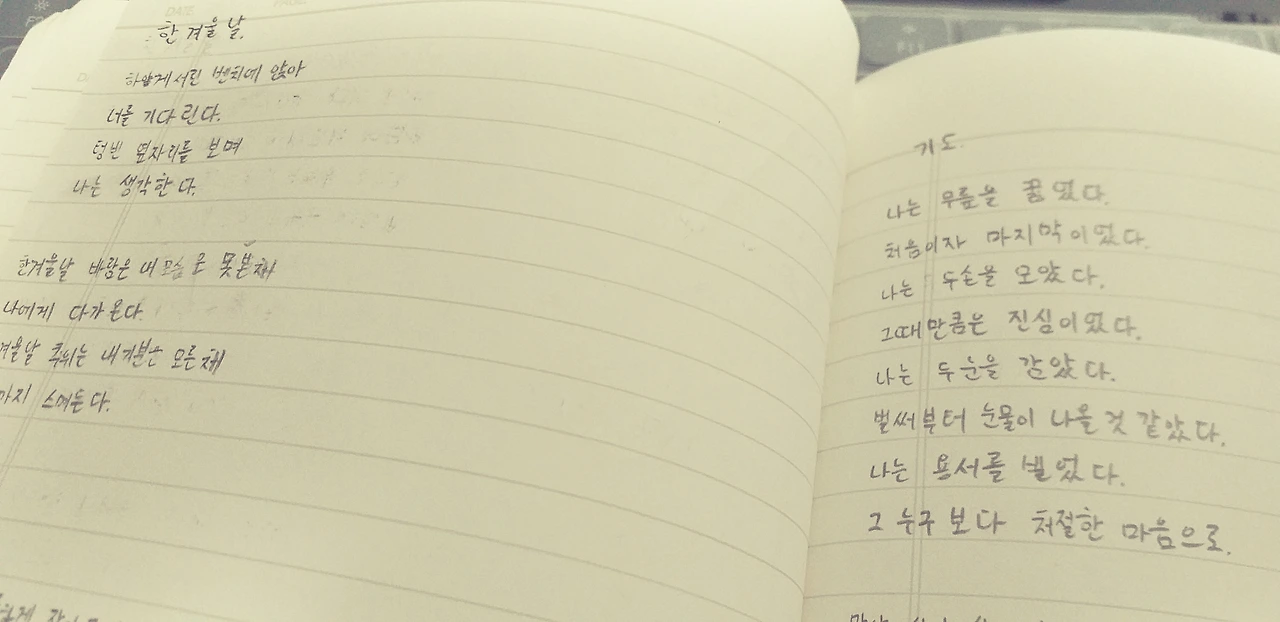 한겨울날.
하얗게 서린 벤치에 앉아
너를 기다린다.
텅빈 옆자리를 보며
나는 생각한다.
한겨울날 바람은 내 모습을 못본채
나에게 다가온다.
겨울날 추위는 내기분은 모른채
까지 스며든다.
기도.
나는 무릎을 꿇었다.
처음이자 마지막이었다.
나는 두손을 모았다.
그때만큼은 진심이었다.
나는 두눈을 감았다.
벌써부터 눈물이 나올 것 같았다.
나는 용서를 빌었다.
그 누구보다 처절한 마음으로.